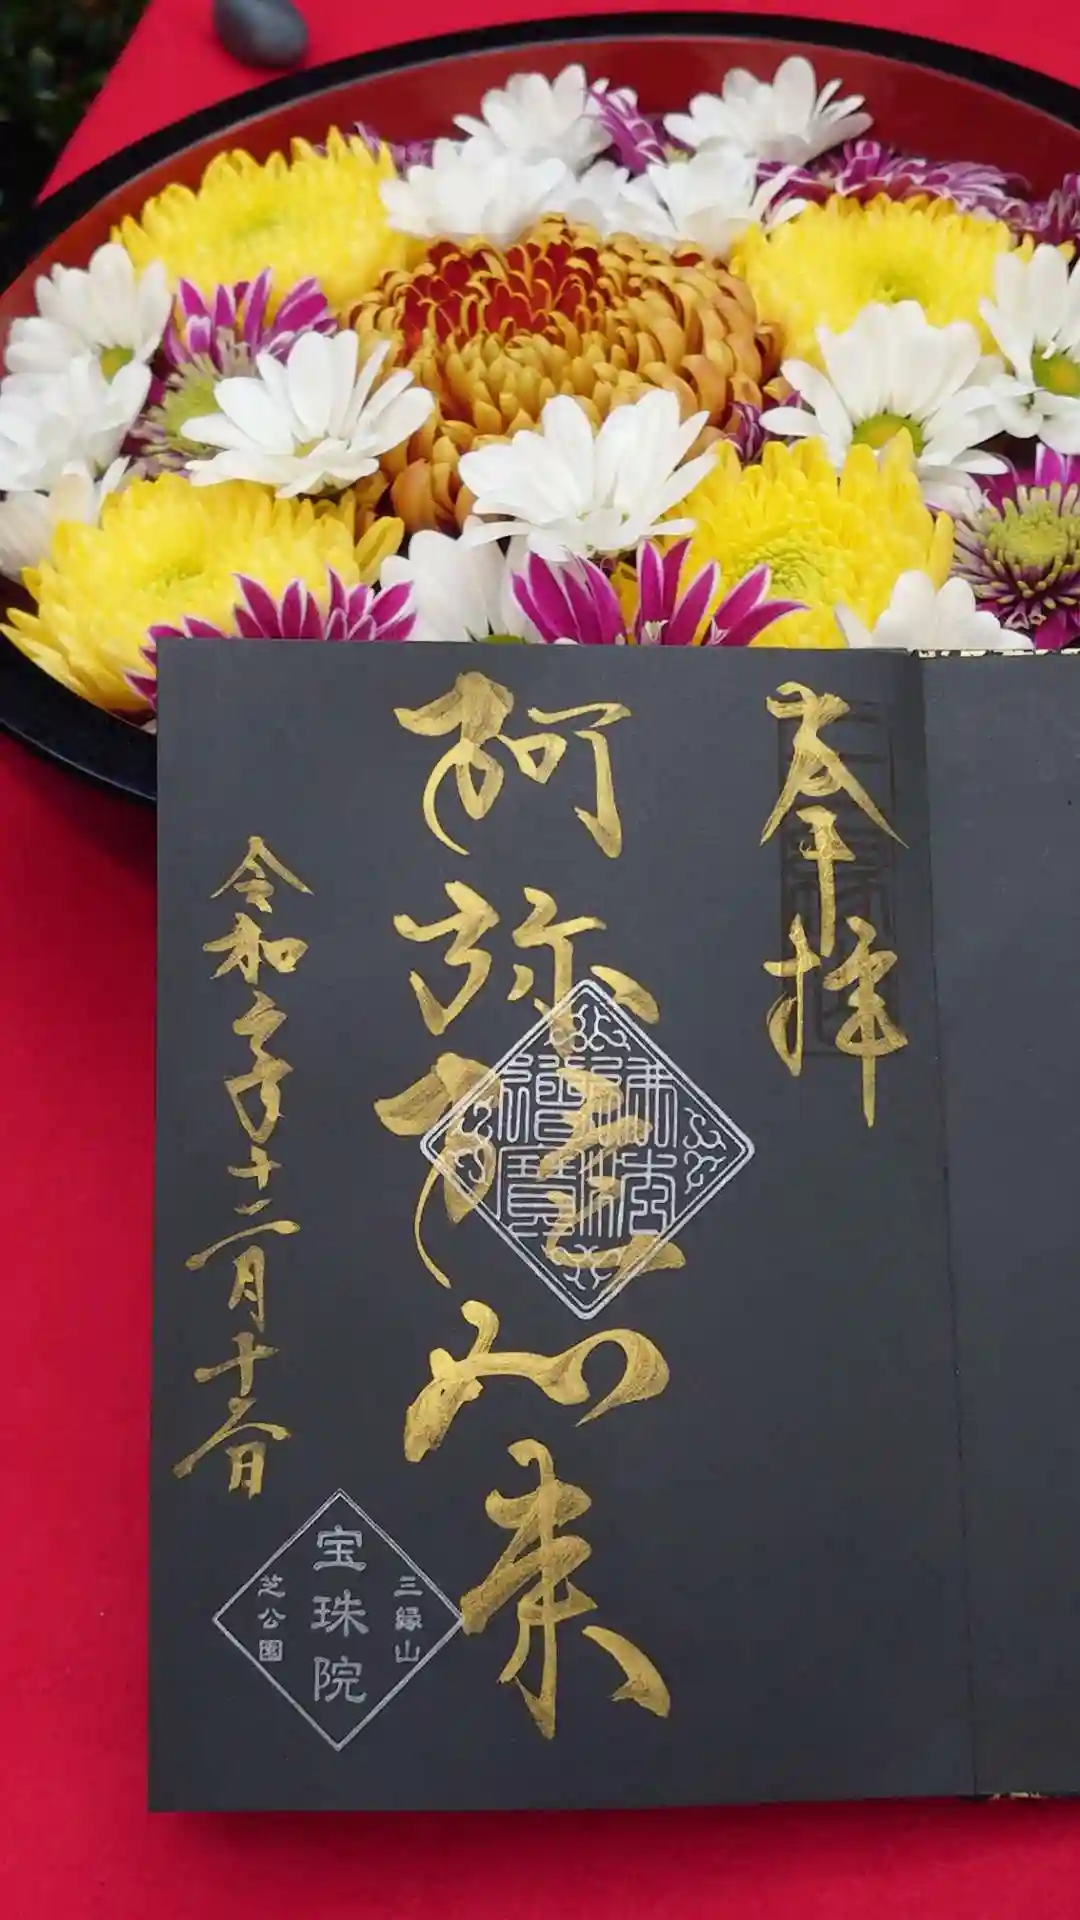 奉拝
阿弥陀如来
佛法
僧寶
令和 年十二月十 日
三縁山
宝珠院
芝公園